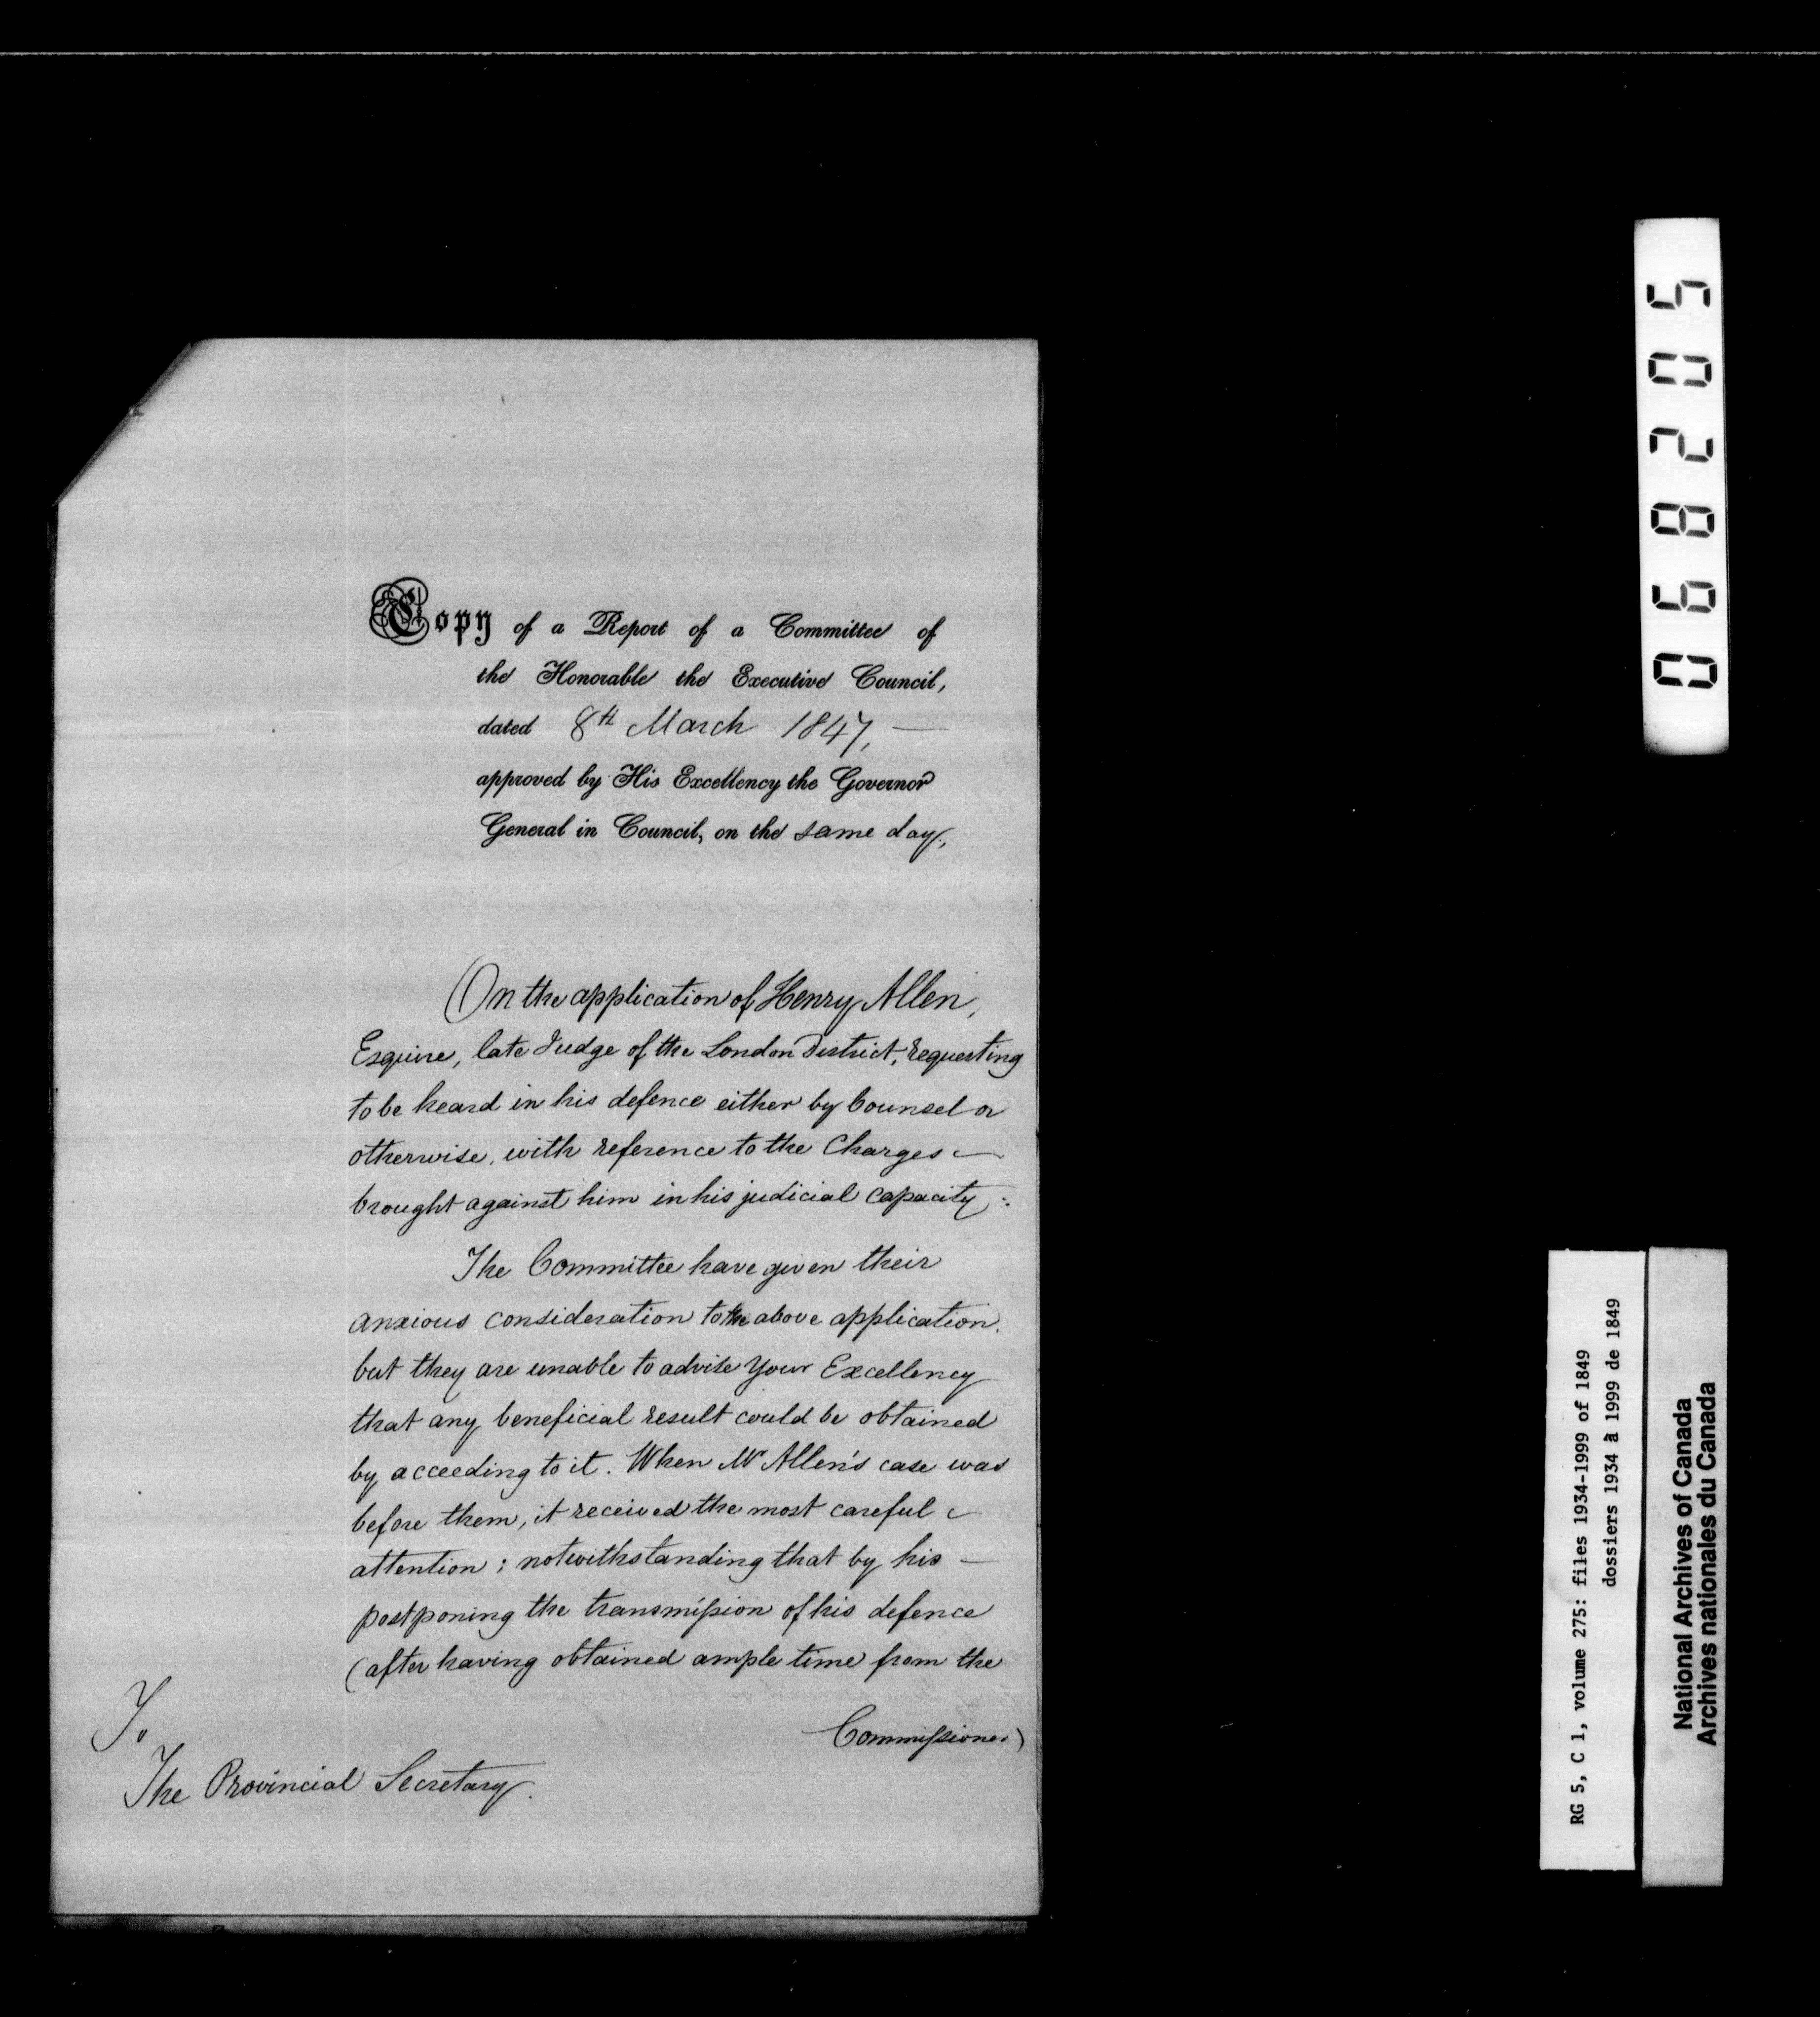 Copy of a Report of a Committee of
the Honorable the Executive Council,
dated 8th March 1847, —
approved by His Excellency the Governor
General in Council, on the same day,
On the application of Henry Allen,
Esquire, late Judge of the London District, requesting
to be heard in his defence either by Counsel or
otherwise, with reference to the Charges —
brought against him in his judicial capacity :
The Committee have given their
anxious consideration to the above application,
but they are unable to advise Your Excellency
that any beneficial result could be obtained
by acceeding to it. When Mr Allen's case was
before them, it received the most careful
attention ; notwithstanding that by his —
postponing the transmission of his defence
(after having obtained ample time from the
Commissioner)
To
The Provincial Secretary.
068205
RG 5, C 1, volume 275: files 1934-1999 of 1849
dossiers 1934 à 1999 de 1849
National Archives of Canada
Archives nationales du Canada